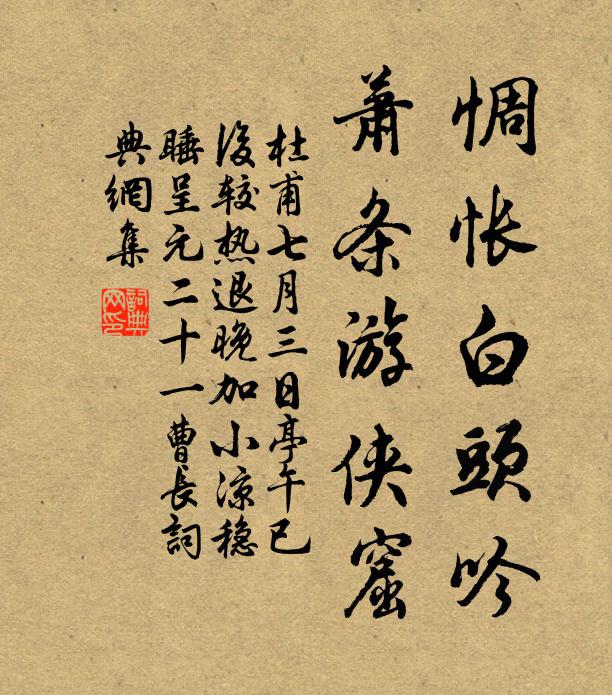 惆怅白頭吟
萧条游侠窟
杜甫七月三日亭午已
後较热退晚加小凉稳
睡呈元二十一曹长詞
典網集
詞典
网印